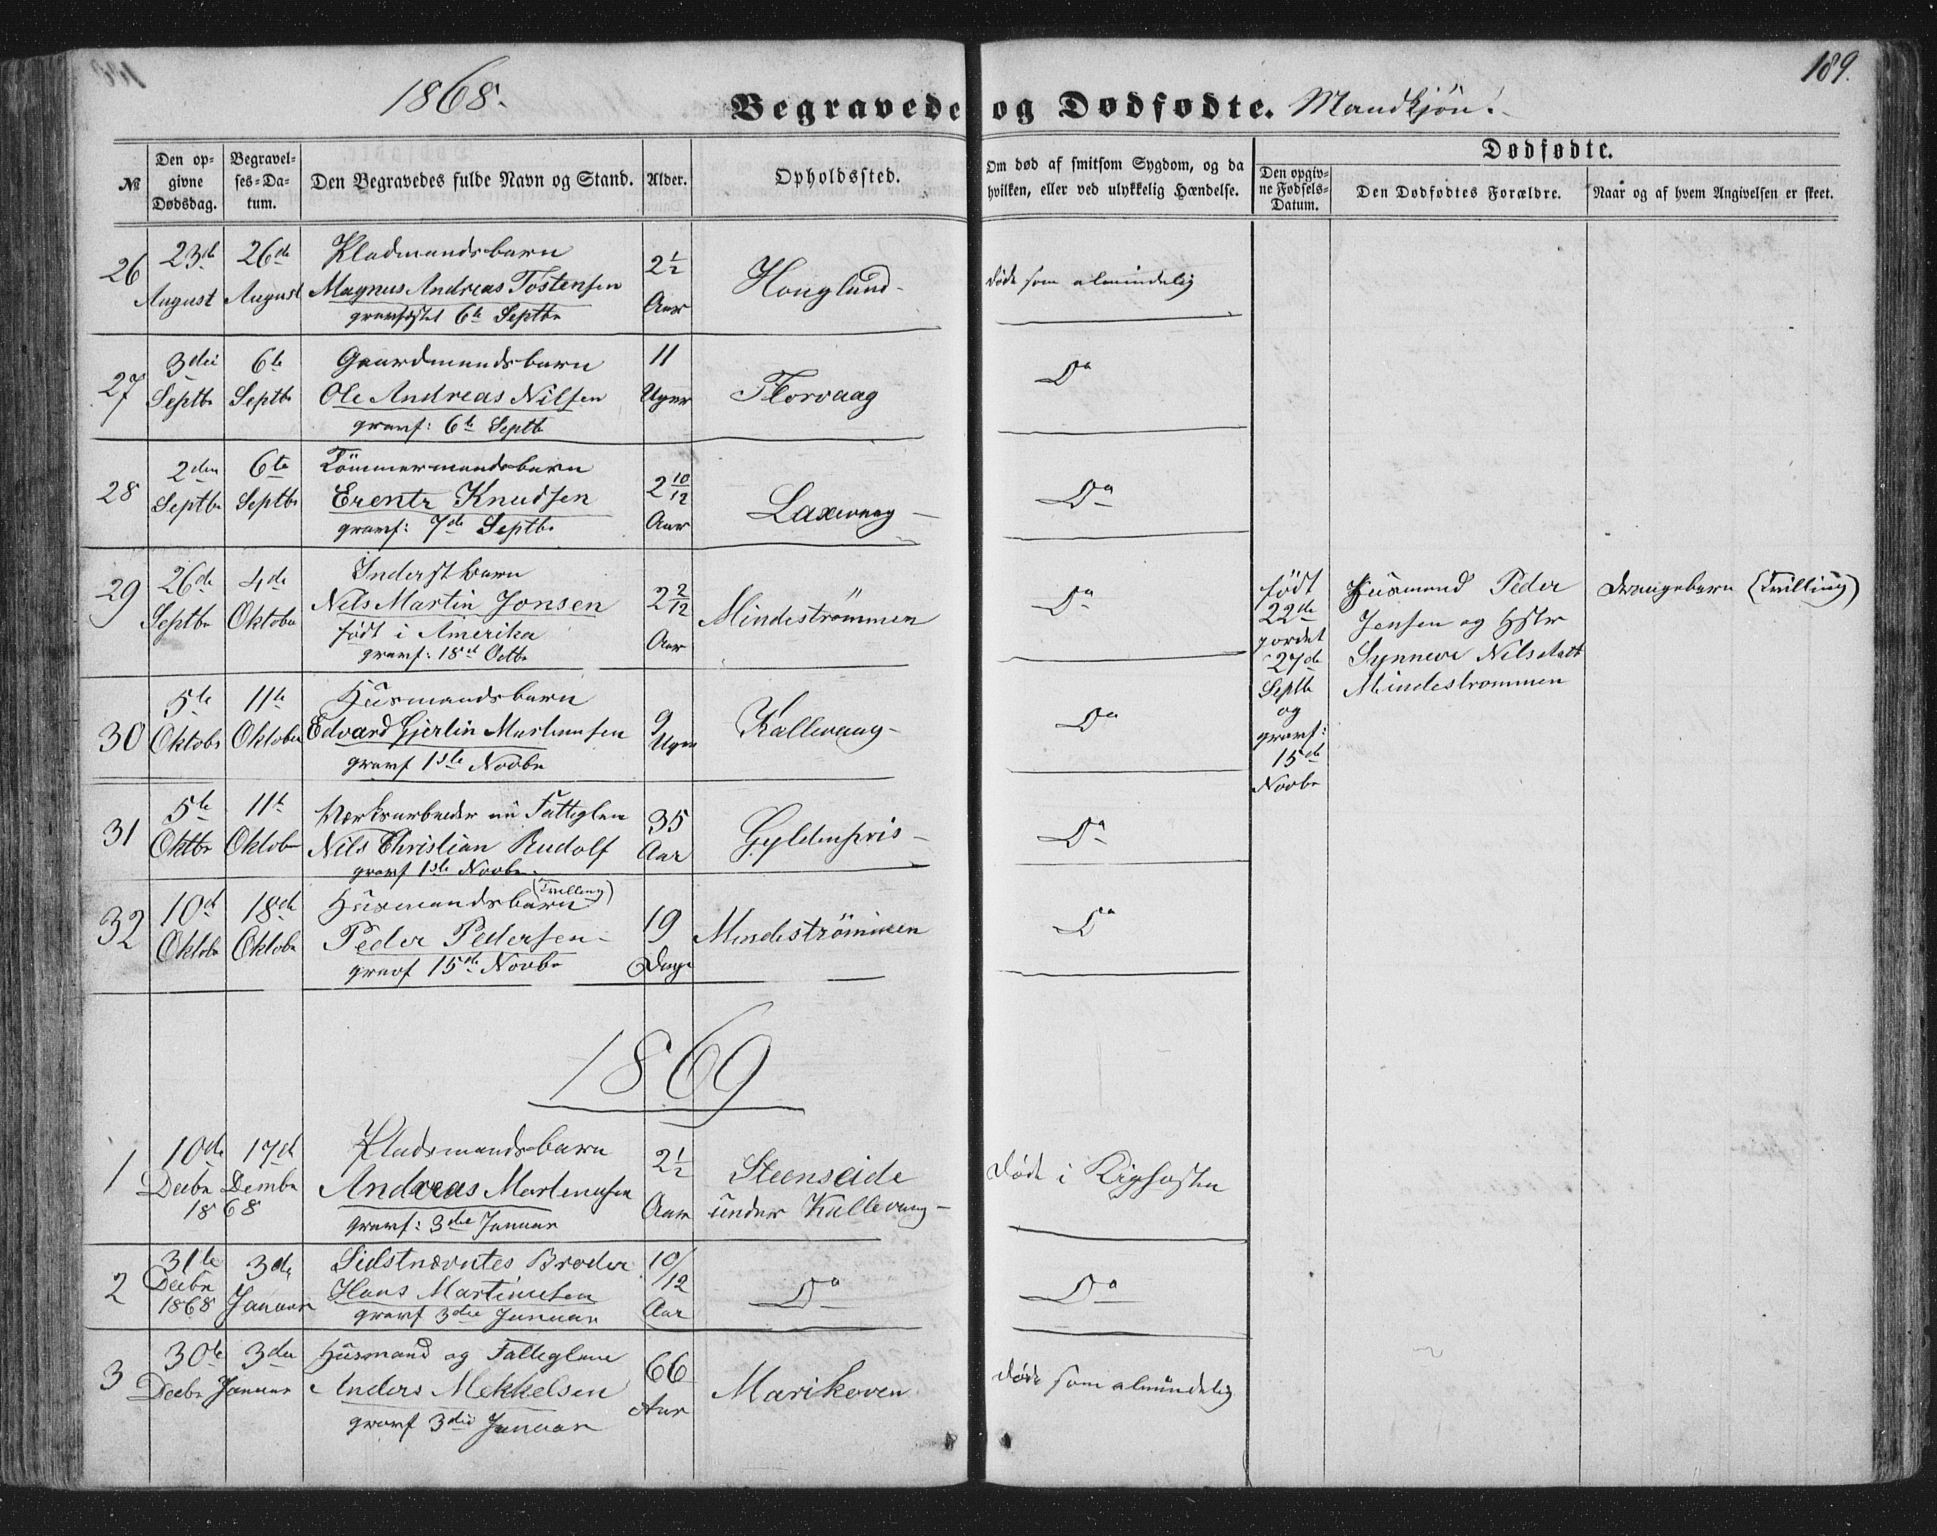 189.
1868.
Begravede og Dødfødte. Mandkjøn.
№
Den opgivne Dødsdag.
Begravelses-Datum.
Den Begravedes fulde Navn og Stand.
Alder.
Opholdssted.
Om død af smitsom Sygdom, og da hvilken, eller ved ulykkelig Hændelse.
Dødfødte.
Den opgivne Fødsels-Datum.
Den Dødfødtes Forældre.
Naar og af hvem Angivelsen er skeet.
26
23de August
26de August
Pladsmandsbarn
Magnus Andreas Tostensen
gravfæstet 6te Septbr
2½ Aar
Houglund
døde som almindelig
27
3die Septbr
6te Septbr
Gaardmandsbarn
Ole Andreas Nilsen
gravf: 6te Septb
11 Uger
Florvaag
Do
28
2den Septbr
6te Septbr
Tømmermandsbarn
Knudsen
gravf: 7de Septbr
2 10/12 Aar
Laxevaag
Do
29
26de Septbr
4de Oktobr
Inderstbarn
Nils Martin Jonsen
født i Amerika
gravf: 18de Octbr
2 2/12 Aar
Mindeströmmen
Do
født
22de
27de
Septb
og
gravf:
15de
Novbr
Husmand Peder
Jensen og Hstr
Synneve Nilsdatt
Mindestrømmen
Drengebarn (Trilling)
30
5te Oktobr
11te Oktober
Husmandsbarn
Edvard Gjertin Martinussen
gravf 1ste Novbr
9 Uger
Kallevaag
Do
31
5te Oktbr
11te Oktobr
Værksarbeider nu Fattiglem
Nils Christian Rudolf
gravf 1ste Novbr
35 Aar
Gyldenpris
Do
32
10de Oktobr
18de Oktobr
Husmandsbarn (Trilling)
Peder Pedersen
gravf 15de Novbr
19 Dage
Mindeströmmen
Do
1869
1
10de Decbr 1868
17de Dcmbr
Pladsmandsbarn
Andreas Martinussen
gravf: 3die Januar
2½ Aar
Steenseide
under Kallevaag
døde i Kighosten
2
31te Decbr 1868
3de Januar
Sidstnævntes Broder
Hans Martinusen
gravf 3die Januar
10/12 Aar
Do
Do
3
30te Decbr
3die Januar
Husmand og Fattiglem
Anders Mekkelsen
gravf 3die Januar
66 Aar
Marikoven
døde som almindelig